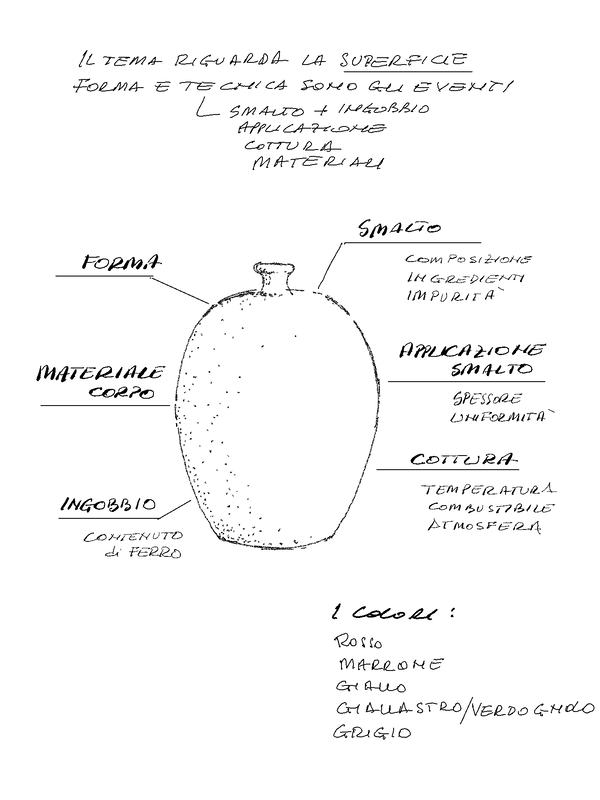 IL TEMA RIGUARDA LA SUPERFICIE
FORMA E TECNICA SONO GLI EVENTI
SMALTO + INGOBBIO
APPLICAZIONE
COTTURA
MATERIALI
SMALTO
COMPOSIZIONE
INGREDIENTI
IMPURITÀ
FORMA
APPLICAZIONE
SMALTO
SPESSORE
UNIFORMITÀ
MATERIALE
CORPO
COTTURA
TEMPERATURA
COMBUSTIBILE
ATMOSFERA
INGOBBIO
CONTENUTO
di FERRO
I COLORI:
ROSSO
MARRONE
GIALLO
GIALLASTRO/VERDOGNOLO
GRIGIO